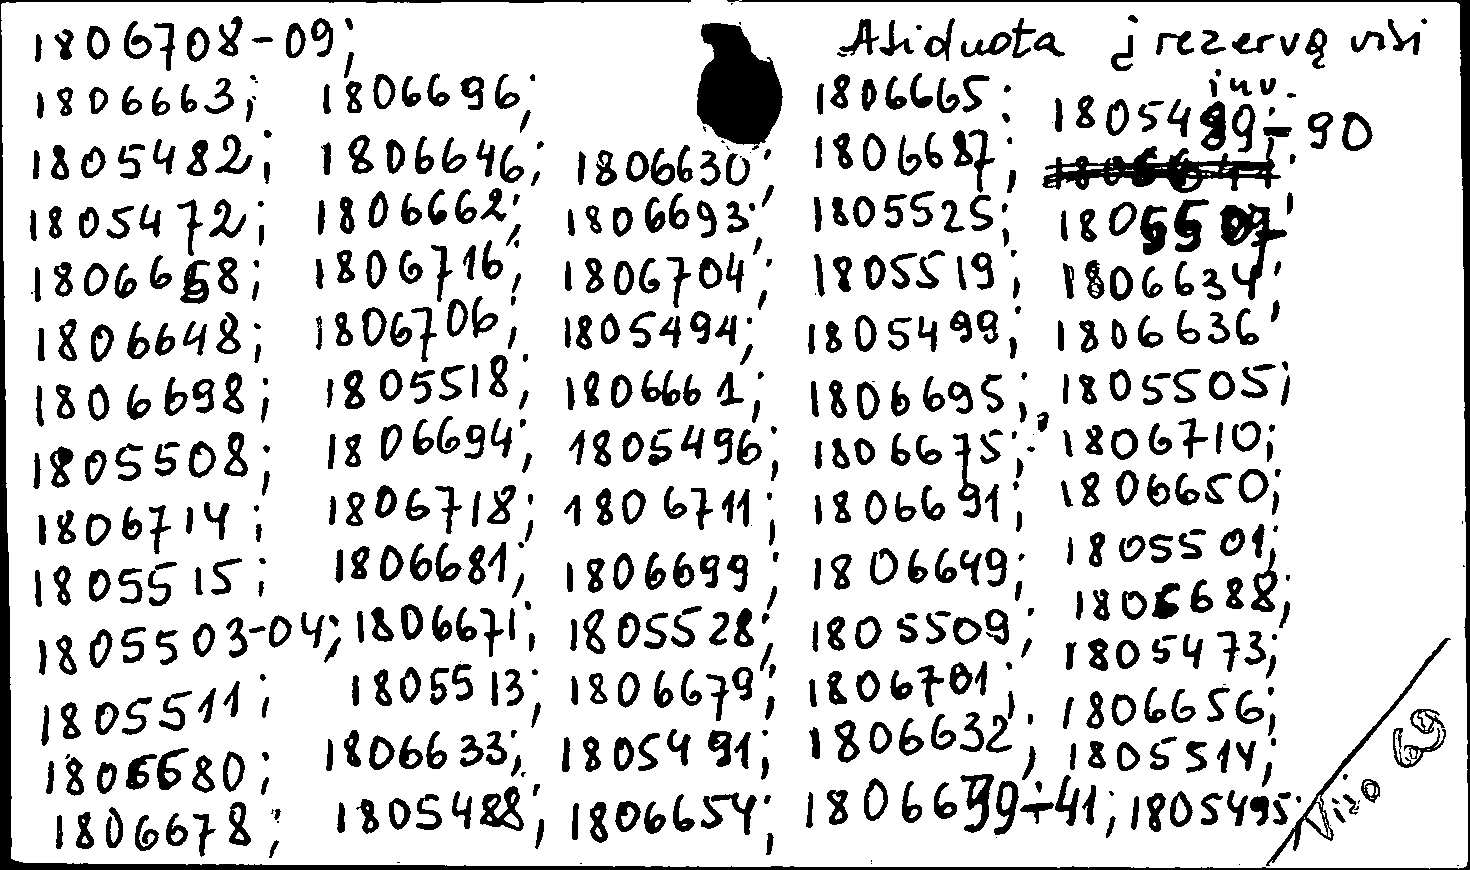 1806708-09; Atiduota į rezervą visi
inv.
1806663; 1806696; 1806665; 1805489-90
1805482; 1806646; 1806630; 1806687;
1805472; 1806662; 1806693; 1805525; 1805507;
1806658; 1806716; 1806704; 1805519; 1806634;
1806648; 1806706; 1805494; 1805499; 1806636;
1806698; 1805518; 1806661; 1806695; 1805505;
1805508; 1806694; 1805496; 1806675; 1806710;
1806714; 1806718; 1806711; 1806691; 1806650;
1805515; 1806681; 1806699; 1806649; 1805501;
1805503-04; 1806671; 1805528; 1805509; 1806688;
1805511; 1805513; 1806679; 1806701; 1805473;
1806680; 1806633; 1805491; 1806632; 1806656;
1805514;
1806678; 1805488; 1806654; 1805495;
Viso 69